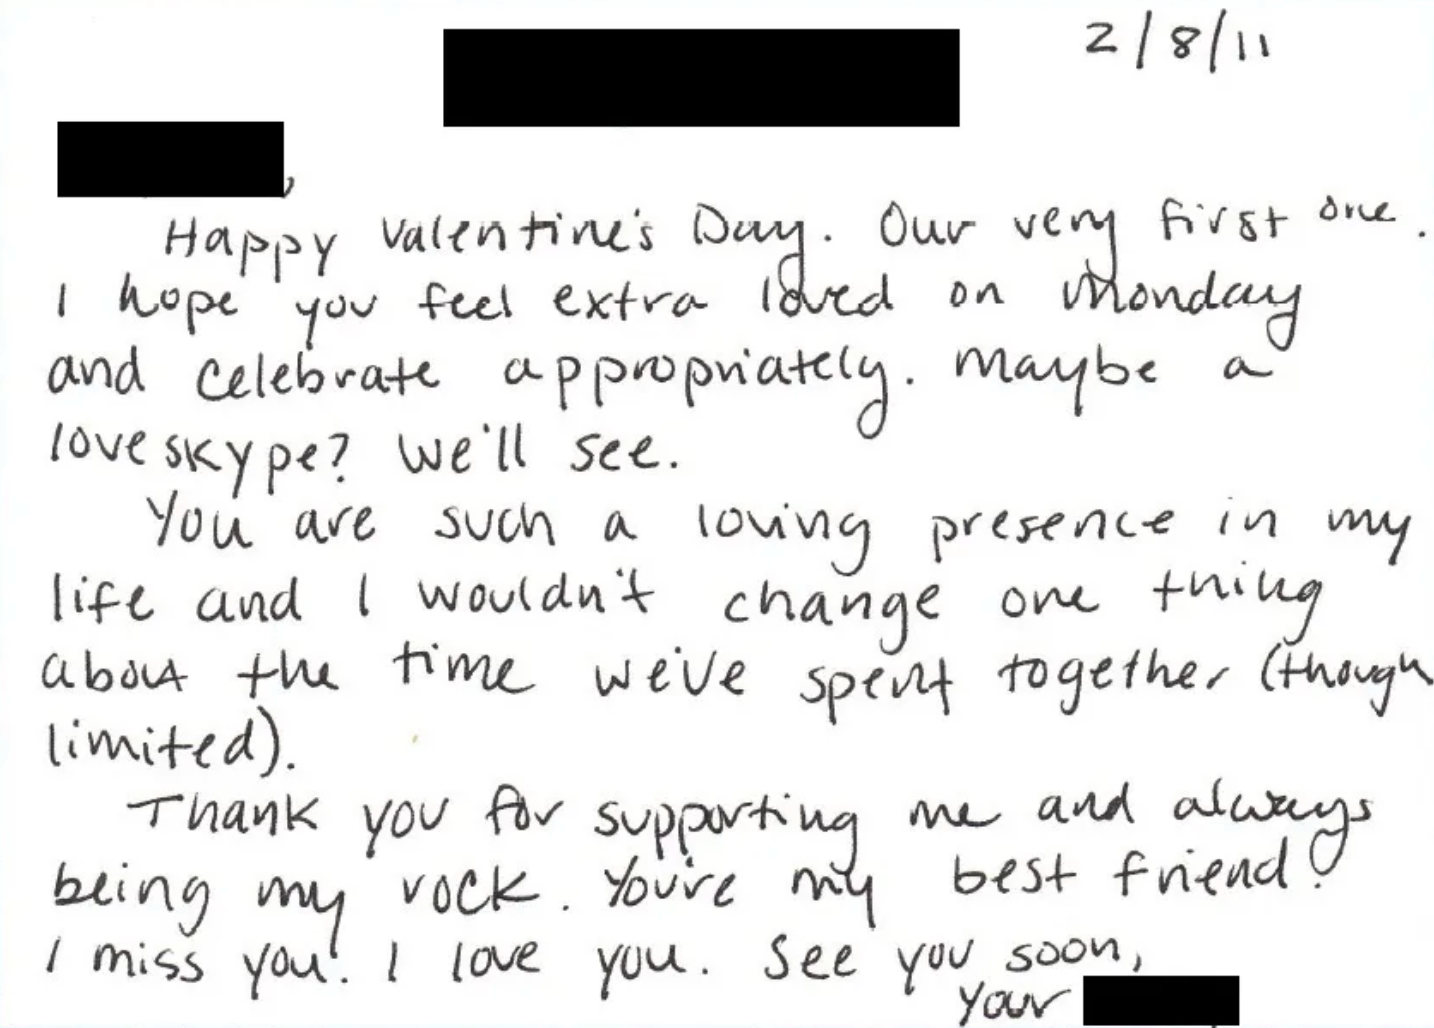 2/8/11
,
Happy Valentine's Day. Our very first one.
I hope you feel extra loved on Monday
and celebrate appropriately. Maybe a
love skype? We'll see.
You are such a loving presence in my
life and I wouldn't change one thing
about the time we've spent together (though
limited).
Thank you for supporting me and always
being my rock. You're my best friend!
I miss you! I love you. See you soon,
your